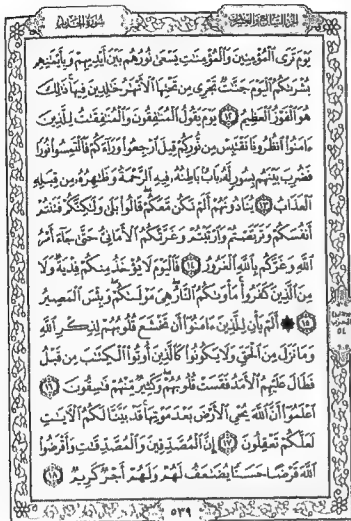 الجزء السابع والعشرون سورة الحديد
يَوْمَ تَرَى ٱلْمُؤْمِنِينَ وَٱلْمُؤْمِنَـٰتِ يَسْعَىٰ نُورُهُم بَيْنَ أَيْدِيهِمْ وَبِأَيْمَـٰنِهِم
بُشْرَىٰكُمُ ٱلْيَوْمَ جَنَّـٰتٌ تَجْرِى مِن تَحْتِهَا ٱلْأَنْهَـٰرُ خَـٰلِدِينَ فِيهَا ذَٰلِكَ
هُوَ ٱلْفَوْزُ ٱلْعَظِيمُ ١٢ يَوْمَ يَقُولُ ٱلْمُنَـٰفِقُونَ وَٱلْمُنَـٰفِقَـٰتُ لِلَّذِينَ
ءَامَنُوا۟ ٱنظُرُونَا نَقْتَبِسْ مِن نُّورِكُمْ قِيلَ ٱرْجِعُوا۟ وَرَآءَكُمْ فَٱلْتَمِسُوا۟ نُورًا
فَضُرِبَ بَيْنَهُم بِسُورٍ لَّهُۥ بَابٌۢ بَاطِنُهُۥ فِيهِ ٱلرَّحْمَةُ وَظَـٰهِرُهُۥ مِن قِبَلِهِ
ٱلْعَذَابُ ١٣ يُنَادُونَهُمْ أَلَمْ نَكُن مَّعَكُمْ قَالُوا۟ بَلَىٰ وَلَـٰكِنَّكُمْ فَتَنتُمْ
أَنفُسَكُمْ وَتَرَبَّصْتُمْ وَٱرْتَبْتُمْ وَغَرَّتْكُمُ ٱلْأَمَانِىُّ حَتَّىٰ جَآءَ أَمْرُ
ٱللَّهِ وَغَرَّكُم بِٱللَّهِ ٱلْغَرُورُ ١٤ فَٱلْيَوْمَ لَا يُؤْخَذُ مِنكُمْ فِدْيَةٌ وَلَا
مِنَ ٱلَّذِينَ كَفَرُوا۟ مَأْوَىٰكُمُ ٱلنَّارُ هِىَ مَوْلَىٰكُمْ وَبِئْسَ ٱلْمَصِيرُ
١٥ ۞ أَلَمْ يَأْنِ لِلَّذِينَ ءَامَنُوٓا۟ أَن تَخْشَعَ قُلُوبُهُمْ لِذِكْرِ ٱللَّهِ
وَمَا نَزَلَ مِنَ ٱلْحَقِّ وَلَا يَكُونُوا۟ كَٱلَّذِينَ أُوتُوا۟ ٱلْكِتَـٰبَ مِن قَبْلُ
فَطَالَ عَلَيْهِمُ ٱلْأَمَدُ فَقَسَتْ قُلُوبُهُمْ وَكَثِيرٌ مِّنْهُمْ فَـٰسِقُونَ ١٦
ٱعْلَمُوٓا۟ أَنَّ ٱللَّهَ يُحْىِ ٱلْأَرْضَ بَعْدَ مَوْتِهَا قَدْ بَيَّنَّا لَكُمُ ٱلْـَٔايَـٰتِ
لَعَلَّكُمْ تَعْقِلُونَ ١٧ إِنَّ ٱلْمُصَّدِّقِينَ وَٱلْمُصَّدِّقَـٰتِ وَأَقْرَضُوا۟
ٱللَّهَ قَرْضًا حَسَنًا يُضَـٰعَفُ لَهُمْ وَلَهُمْ أَجْرٌ كَرِيمٌ ١٨
٥٣٩